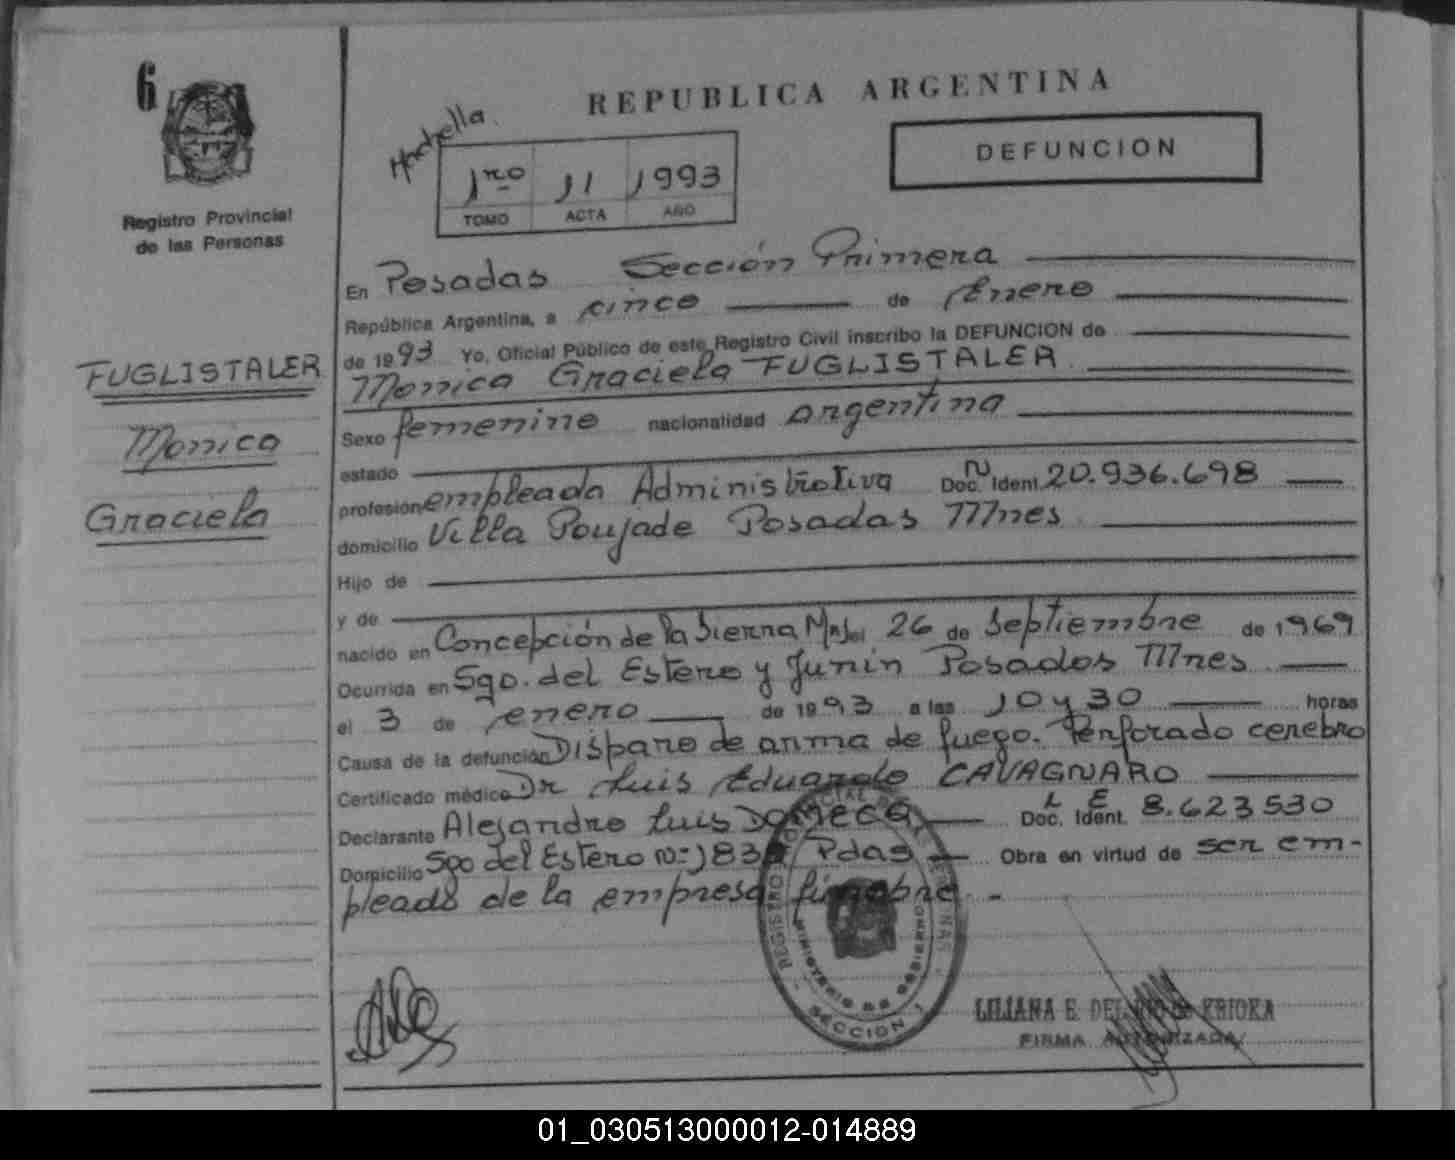 6
Registro Provincial
de las Personas
FUGLISTALER
Monica
Graciela
REPUBLICA ARGENTINA
DEFUNCION
1ro 11 1993
TOMO ACTA AÑO
En Posadas Sección Primera
República Argentina, a cinco de Enero
de 1993 Yo, Oficial Público de este Registro Civil inscribo la DEFUNCION de
Monica Graciela FUGLISTALER
Sexo femenino nacionalidad argentina
estado
profesión empleada Administrativa Doc. Ident. 20.936.698
domicilio Villa Poujade Posadas Mnes
Hijo de
y de
nacido en Concepción de la Sierra Mns el 26 de Septiembre de 1969
Ocurrida en Sgo. del Estero y Junín Posadas Mnes
el 3 de enero de 1993 a las 10 y 30 horas
Causa de la defunción Disparo de arma de fuego. Perforado cerebro
Certificado médico Dr Luis Eduardo CAVAGNARO
Declarante Alejandro Luis Doc. Ident. L E 8.623530
Domicilio Sgo del Estero Nº 183 Pdas Obra en virtud de ser em-
pleado de la empresa fúnebre. -
MINISTERIO DE GOBIERNO
SECCION 1
LILIANA E. DEL
FIRMA AUTORIZADA
01_030513000012-014889